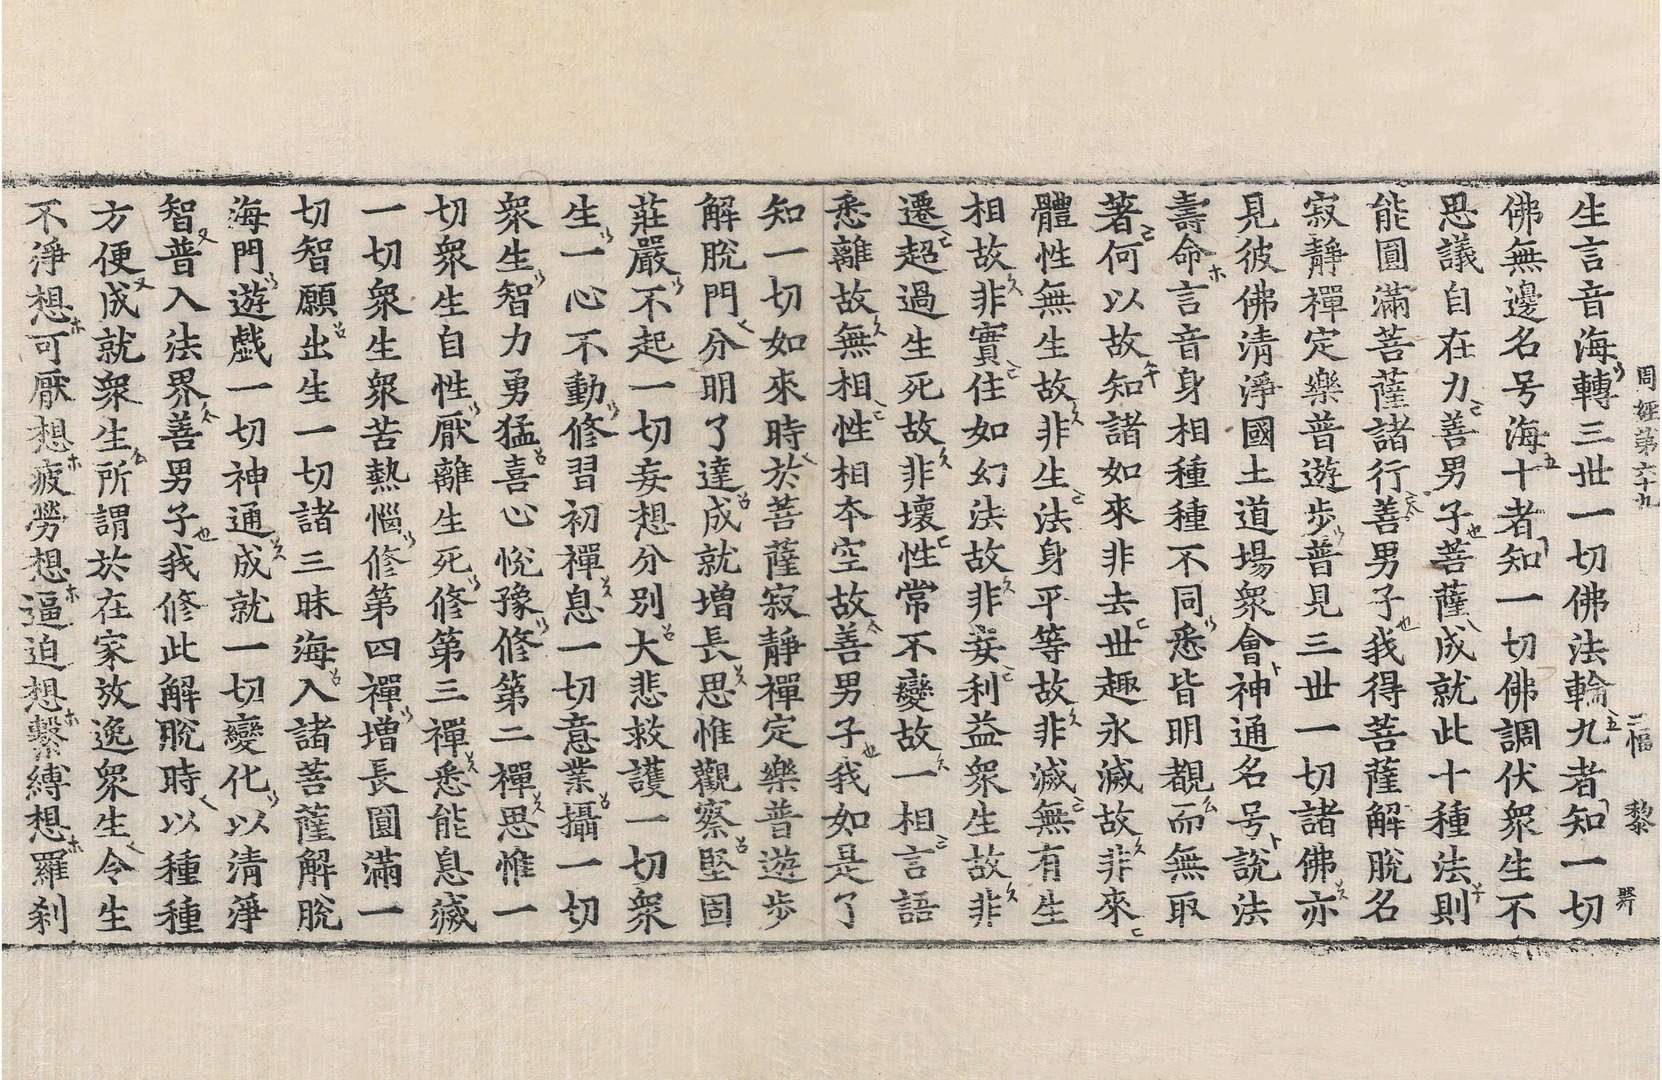 周經第六十九
二幅
黎
生言音海轉三世一切佛法輪九者知一切
佛無邊名号海十者知一切佛調伏衆生不
思議自在力善男子菩薩成就此十種法則
能圓滿菩薩諸行善男子我得菩薩解脫名
寂靜禪定樂普遊步普見三世一切諸佛亦
見彼佛清淨國土道場衆會神通名号說法
壽命言音身相種種不同悉皆明覩而無取
著何以故知諸如來非去世趣永滅故非來
體性無生故非生法身平等故非滅無有生
相故非實住如幻法故非妄利益衆生故非
遷超過生死故非壞性常不變故一相言語
悉離故無相性相本空故善男子我如是了
知一切如來時於菩薩寂靜禪定樂普遊步
解脫門分明了達成就增長思惟觀察堅固
莊嚴不起一切妄想分別大悲救護一切衆
生一心不動修習初禪息一切意業攝一切
衆生智力勇猛喜心悅豫修第二禪思惟一
切衆生自性厭離生死修第三禪悉能息滅
一切衆生衆苦熱惱修第四禪增長圓滿一
切智願出生一切諸三昧海入諸菩薩解脫
海門遊戲一切神通成就一切變化以清淨
智普入法界善男子我修此解脫時以種種
方便成就衆生所謂於在家放逸衆生令生
不淨想可厭想疲勞想逼迫想繫縛想羅刹